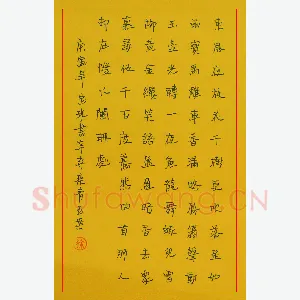 東風夜放花千樹更吹落星如
雨寶馬雕車香滿路鳳簫聲動
玉壺光轉一夜魚龍舞蛾兒雪
柳黃金縷笑語盈盈暗香去衆
裏尋他千百度驀然回首那人
却在燈火闌珊處
庚寅年書辛棄疾
Shufawang.CN